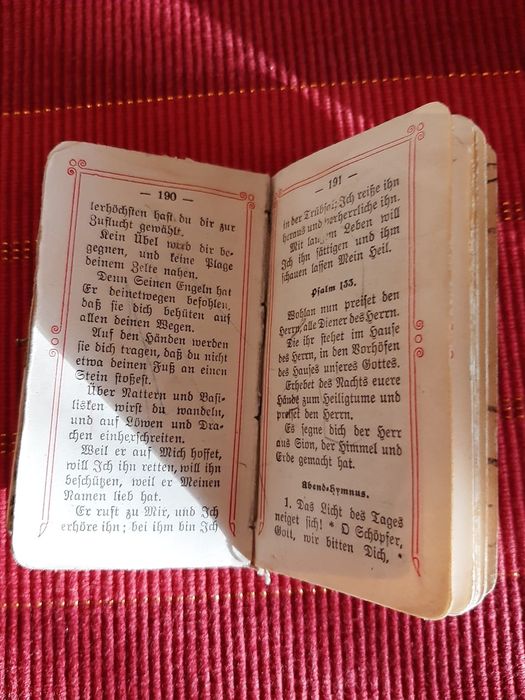 — 190 —
lerhöchsten hast du dir zur
Zuflucht gewählt.
Kein Übel wird dir be-
gegnen, und keine Plage
deinem Zelte nahen.
Denn Seinen Engeln hat
Er deinetwegen befohlen,
daß sie dich behüten auf
allen deinen Wegen.
Auf den Händen werden
sie dich tragen, daß du nicht
etwa deinen Fuß an einen
Stein stoßest.
Über Nattern und Basi-
lisken wirst du wandeln,
und auf Löwen und Dra-
chen einherschreiten.
Weil er auf Mich hoffet,
will Ich ihn retten, will ihn
beschützen, weil er Meinen
Namen lieb hat.
Er ruft zu Mir, und Ich
erhöre ihn; bei ihm bin Ich
— 191 —
in der Trübsal; Ich reiße ihn
heraus und verherrliche ihn.
Mit langem Leben will
Ich ihn sättigen und ihm
schauen lassen Mein Heil.
Psalm 133.
Wohlan nun preiset den
Herrn, alle Diener des Herrn.
Die ihr stehet im Hause
des Herrn, in den Vorhöfen
des Hauses unseres Gottes.
Erhebet des Nachts euere
Hände zum Heiligtume und
preiset den Herrn.
Es segne dich der Herr
aus Sion, der Himmel und
Erde gemacht hat.
Abend-Hymnus.
1. Das Licht des Tages
neiget sich! * O Schöpfer,
Gott, wir bitten Dich, *